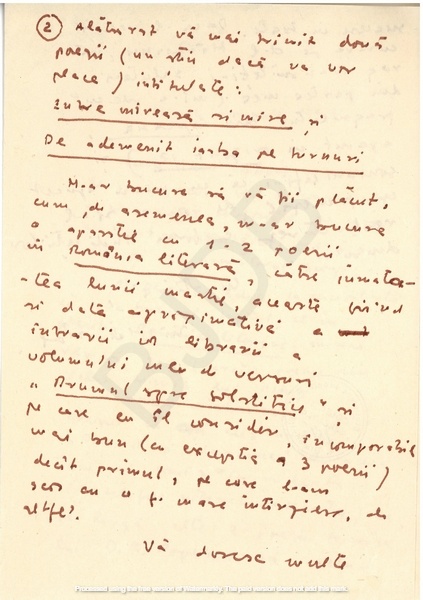 2 Alăturat vă mai trimit două
poezii (nu știu dacă va vor
place) intitulate:
Între mireasă si mire și
De ademenit iarba pe turnuri
M-ar bucura să vă fi plăcut,
cum, de asemenea, m-ar bucura
o apariție cu 1-2 poezii
în România literară, către jumăta-
-tea lunii martie, aceasta fiind
si data aproximativă a
intrării în librării a
volumului meu de versuri
„Drumul spre solstitiu" și
pe care eu îl consider, incomparabil
mai bun (cu excepția a 3 poezii)
decât primul, pe care l-am
scos cu o f. mare întîrziere, de
altfel.
Vă doresc multe
BJDB